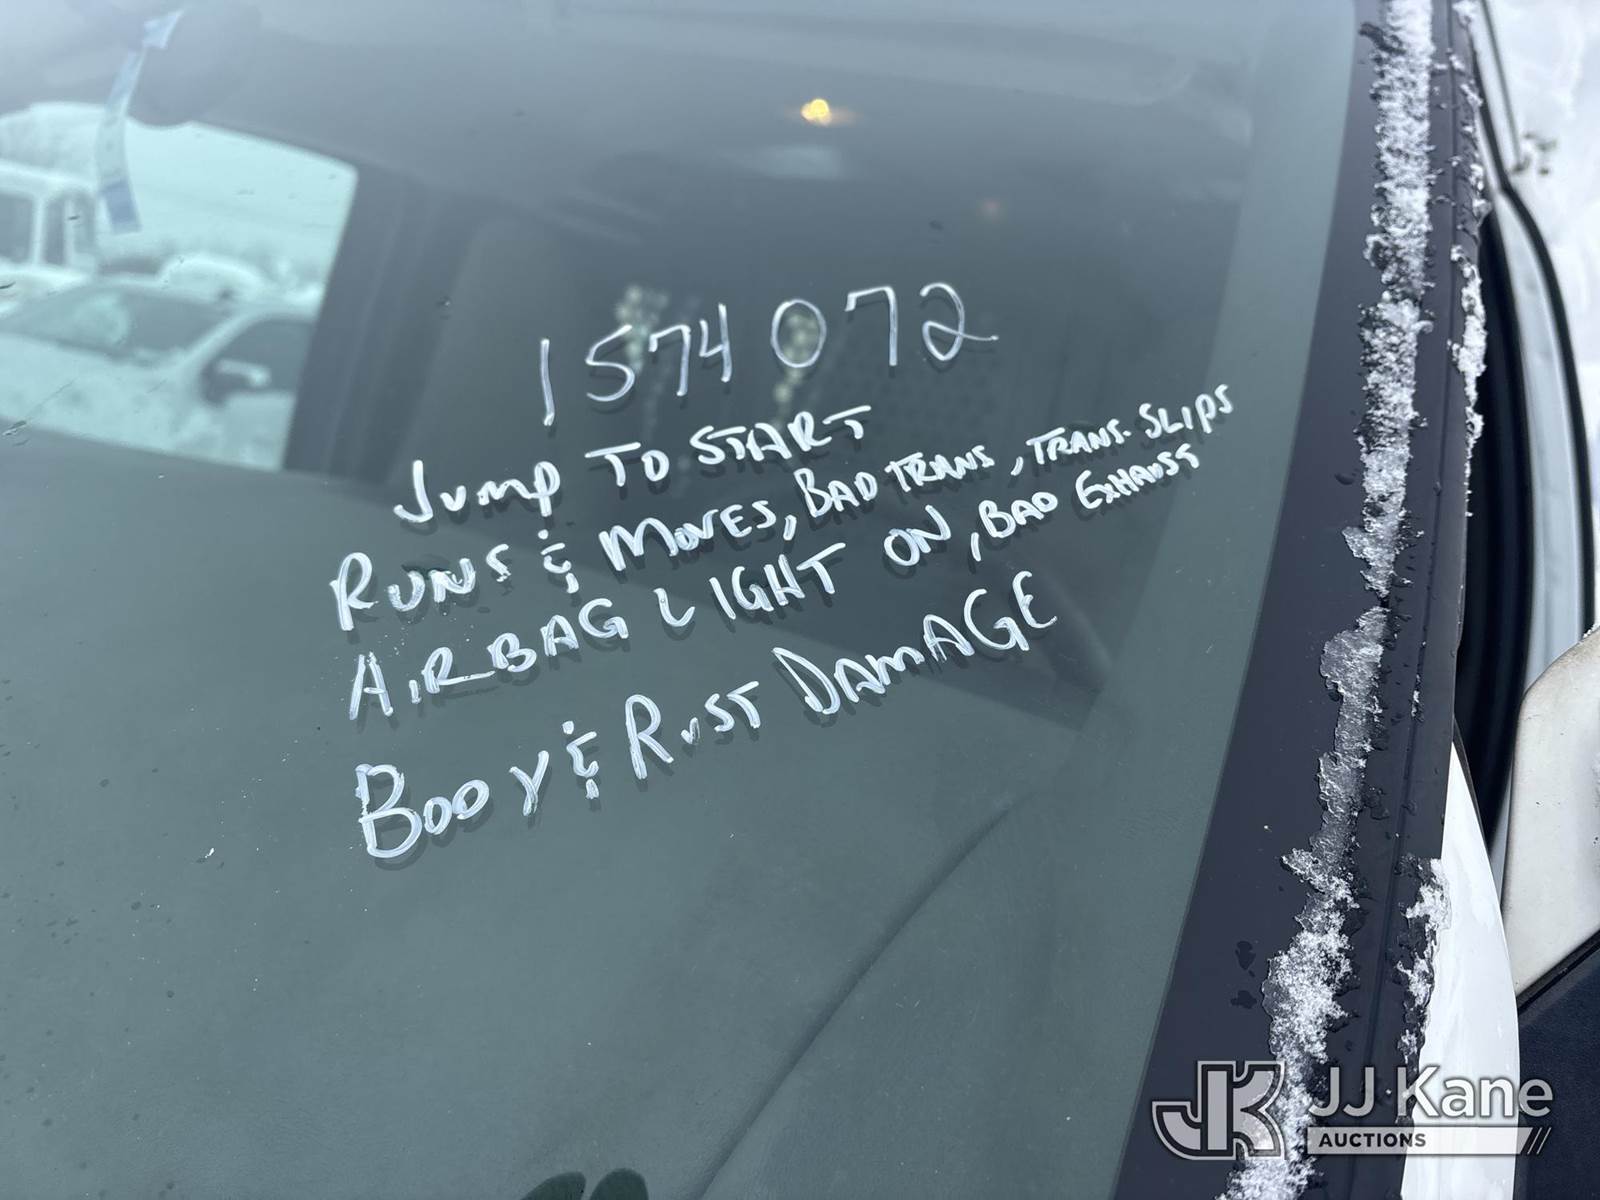 1574072
JUMP TO START
RUNS & MOVES, BAD TRANS, TRANS. SLIPS
AIRBAG LIGHT ON, BAD EXHAUST
BODY & RUST DAMAGE
JK JJ Kane
AUCTIONS